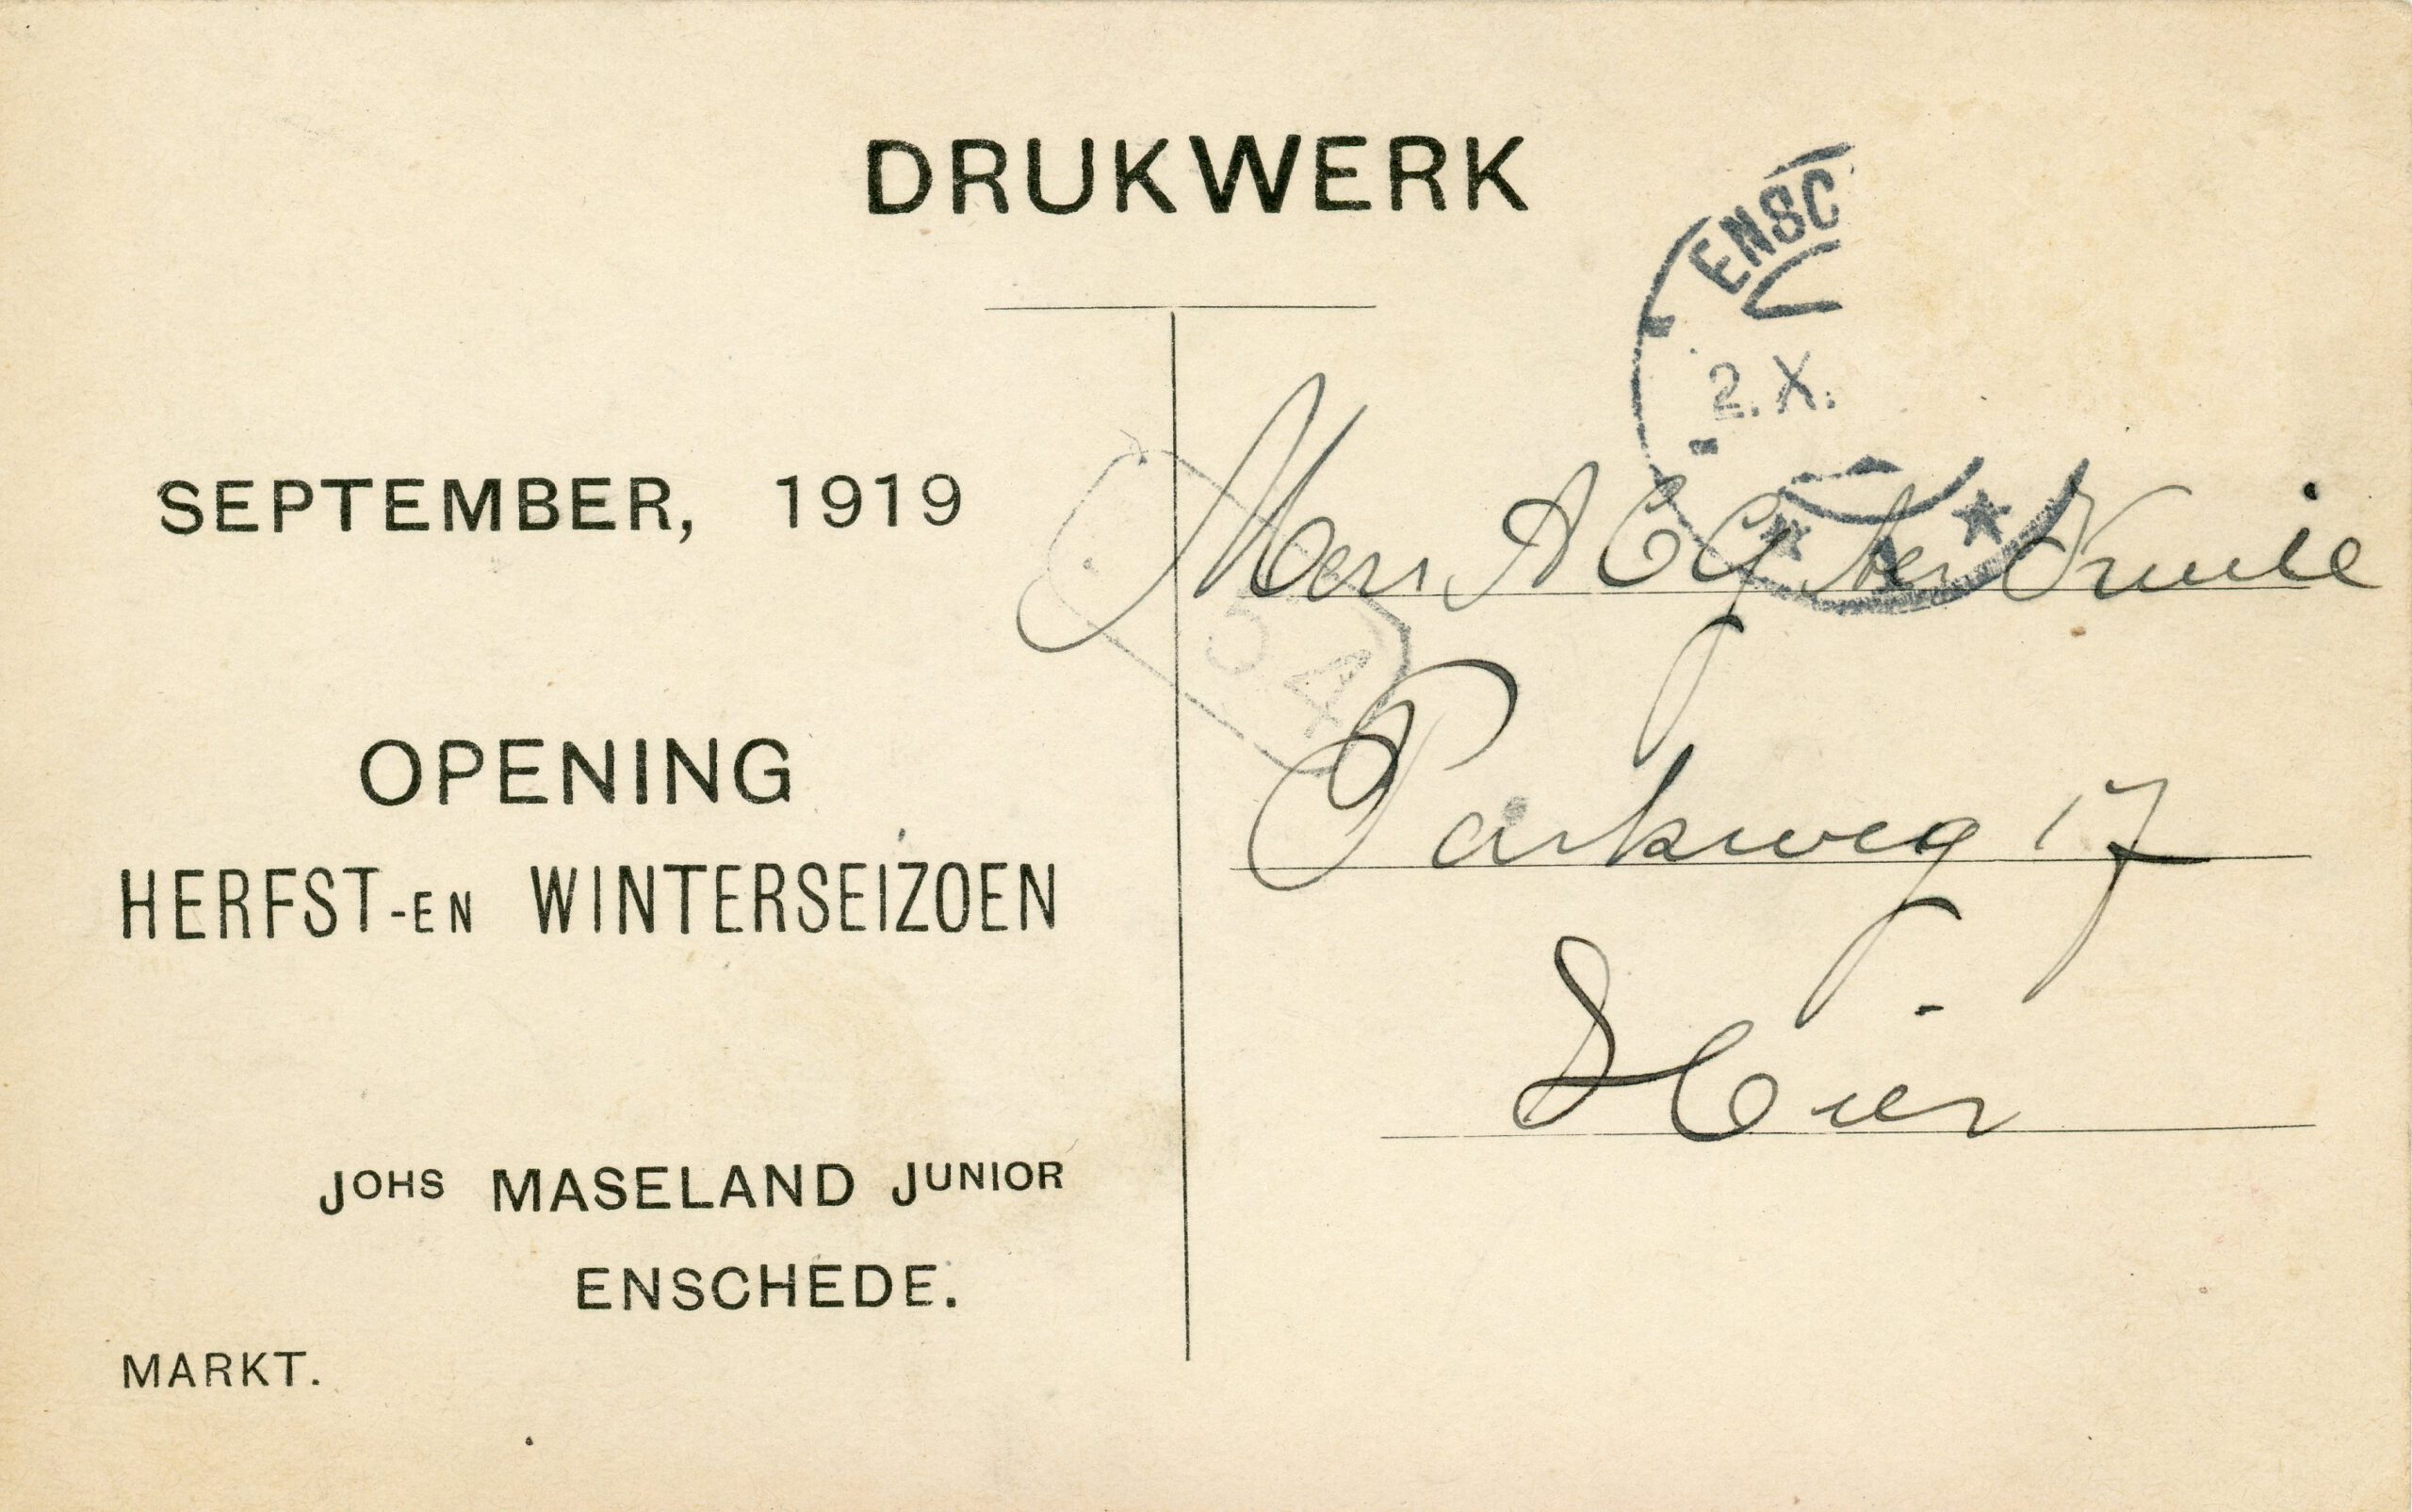 DRUKWERK
ENSC
2.X.
SEPTEMBER, 1919
54
OPENING
HERFST-EN WINTERSEIZOEN
JOHS MASELAND JUNIOR
ENSCHEDE.
MARKT.
A C G ter Kuile
Parkweg 17
Hier